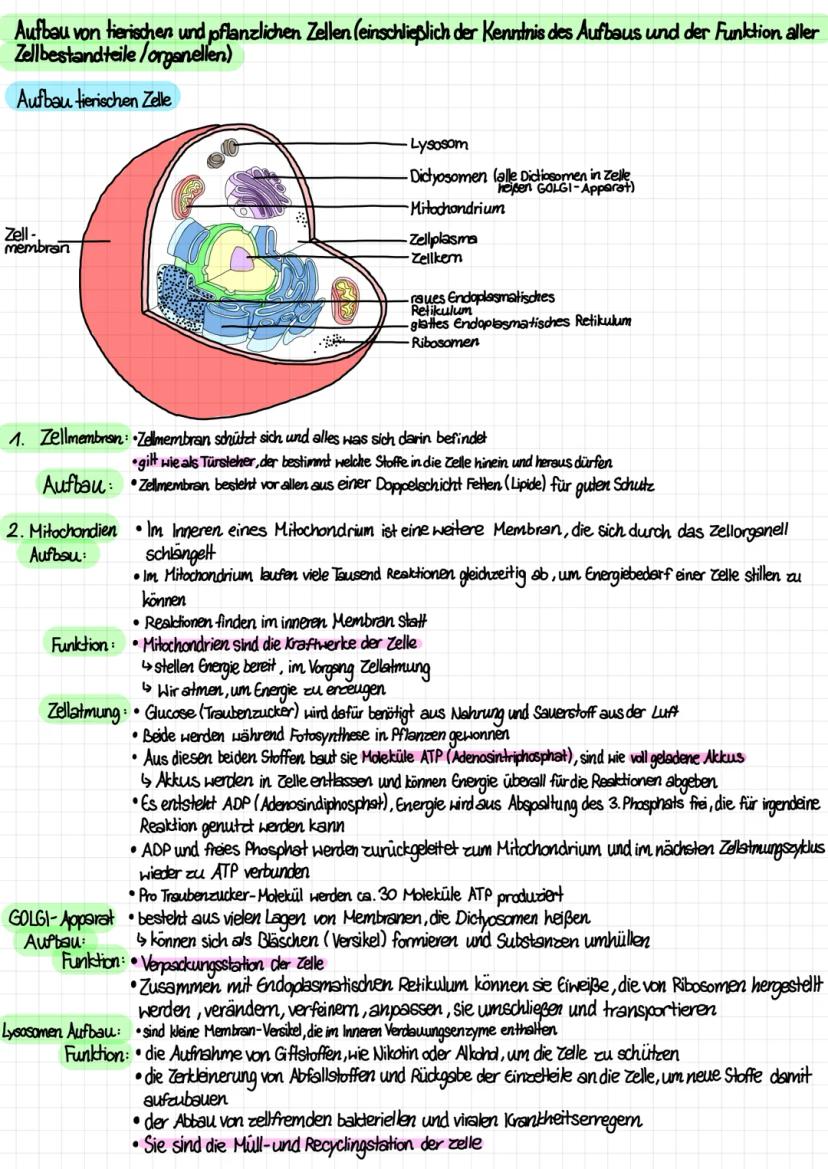 Aufbau von tierischen und pflanzlichen Zellen (einschließlich der Kenntnis des Aufbaus und der Funktion aller
Zellbestandteile/organellen)
Aufbau tierischen Zelle
Lysosom
Dictyosomen (alle Dictiosomen in Zelle
heißen GOLGI-Apparat)
Mitochondrium
Zell-
membran
Zellplasma
Zellkern
raues Endoplasmatisches
Retikulum
glattes Endoplasmatisches Retikulum
Ribosomen
1. Zellmembran: • Zellmembran schützt sich und alles was sich darin befindet
• gilt wie als Türsteher, der bestimmt welche Stoffe in die Zelle hinein und heraus dürfen
Aufbau: • Zellmembran besteht vor allen aus einer Doppelschicht Fetten (Lipide) für guten Schutz
2. Mitochondien • Im Inneren eines Mitochondrium ist eine weitere Membran, die sich durch das Zellorganell
Aufbau: schlängelt
• Im Mitochondrium laufen viele Tausend Reaktionen gleichzeitig ab, um Energiebedarf einer Zelle stillen zu
können
• Reaktionen finden im inneren Membran statt
Funktion: • Mitochondrien sind die Kraftwerke der Zelle
↳ stellen Energie bereit, im Vorgang Zellatmung
↳ Wir atmen, um Energie zu erzeugen
Zellatmung: • Glucose (Traubenzucker) wird dafür benötigt aus Nahrung und Sauerstoff aus der Luft
• Beide werden während Fotosynthese in Pflanzen gewonnen
• Aus diesen beiden Stoffen baut sie Moleküle ATP (Adenosintriphosphat), sind wie voll geladene Akkus
↳ Akkus werden in Zelle entlassen und können Energie überall für die Reaktionen abgeben
• Es entsteht ADP (Adenosindiphosphat), Energie wird aus Abspaltung des 3. Phosphats frei, die für irgendeine
Reaktion genutzt werden kann
• ADP und freies Phosphat werden zurückgeleitet zum Mitochondrium und im nächsten Zellatmungszyklus
wieder zu ATP verbunden
• Pro Traubenzucker-Molekül werden ca. 30 Moleküle ATP produziert
GOLGI-Apparat • besteht aus vielen Lagen von Membranen, die Dictyosomen heißen
Aufbau: ↳ können sich als Bläschen (Versikel) formieren und Substanzen umhüllen
Funktion: • Verpackungsstation der Zelle
• Zusammen mit Endoplasmatischen Retikulum können sie Eiweiße, die von Ribosomen hergestellt
werden, verändern, verfeinern, anpassen, sie umschließen und transportieren
Lysosomen Aufbau: • sind kleine Membran-Versikel, die im Inneren Verdauungsenzyme enthalten
Funktion: • die Aufnahme von Giftstoffen, wie Nikotin oder Alkohol, um die Zelle zu schützen
• die Zerkleinerung von Abfallstoffen und Rückgabe der Einzelteile an die Zelle, um neue Stoffe damit
aufzubauen
• der Abbau von zellfremden bakteriellen und viralen Krankheitserregern
• Sie sind die Müll- und Recyclingstation der zelle